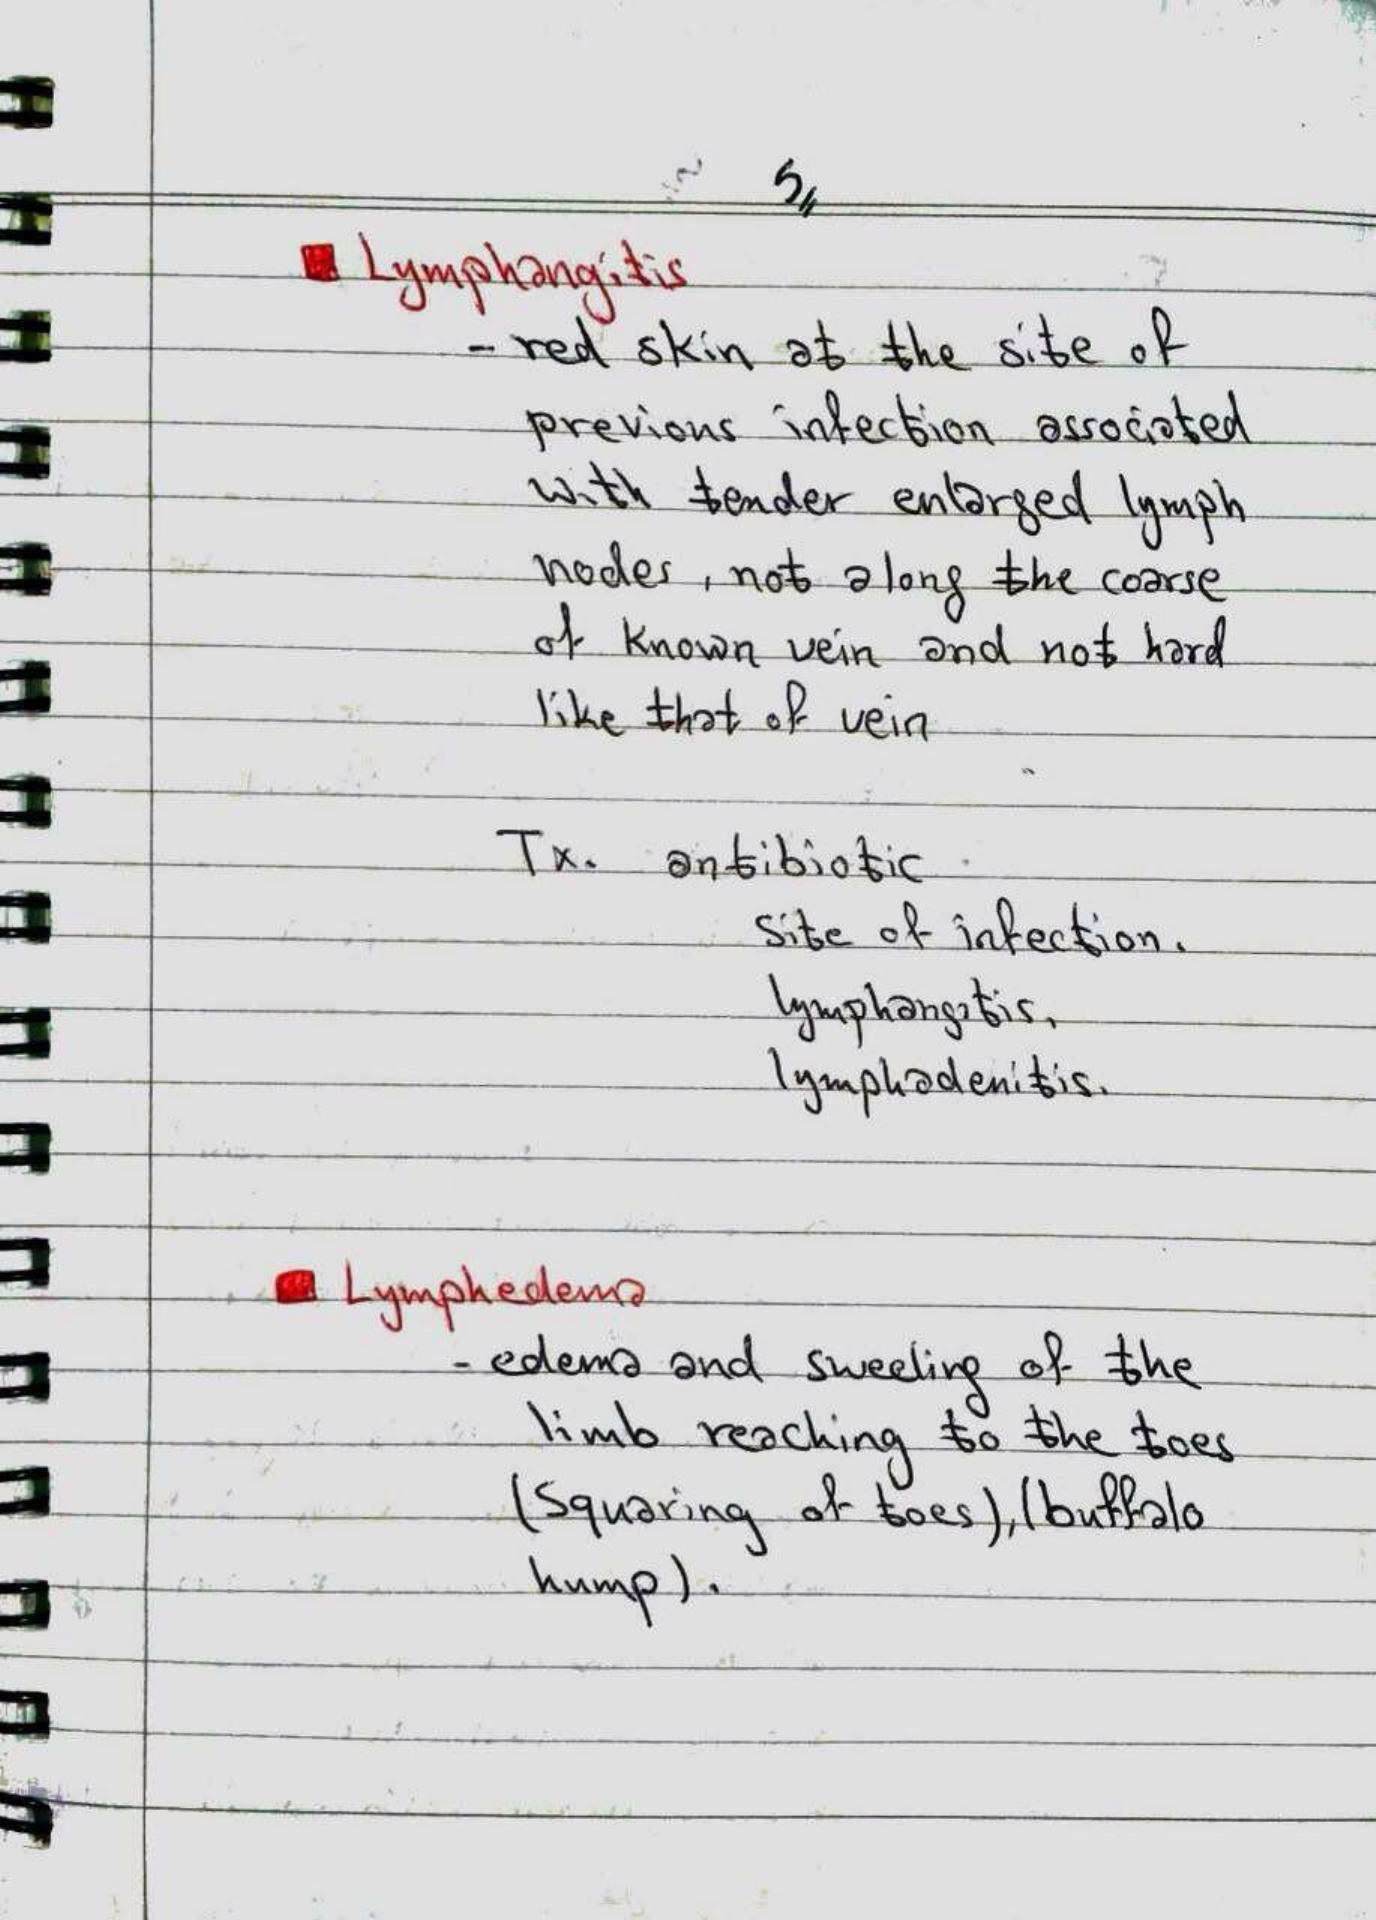 5
Lymphangitis
- red skin at the site of
previous infection associated
with tender enlarged lymph
nodes, not along the coarse
of known vein and not hard
like that of vein
Tx. antibiotic
site of infection.
lymphangitis,
lymphadenitis.
Lymphedema
- edema and sweeling of the
limb reaching to the toes
(Squaring of toes), (buffalo
hump).